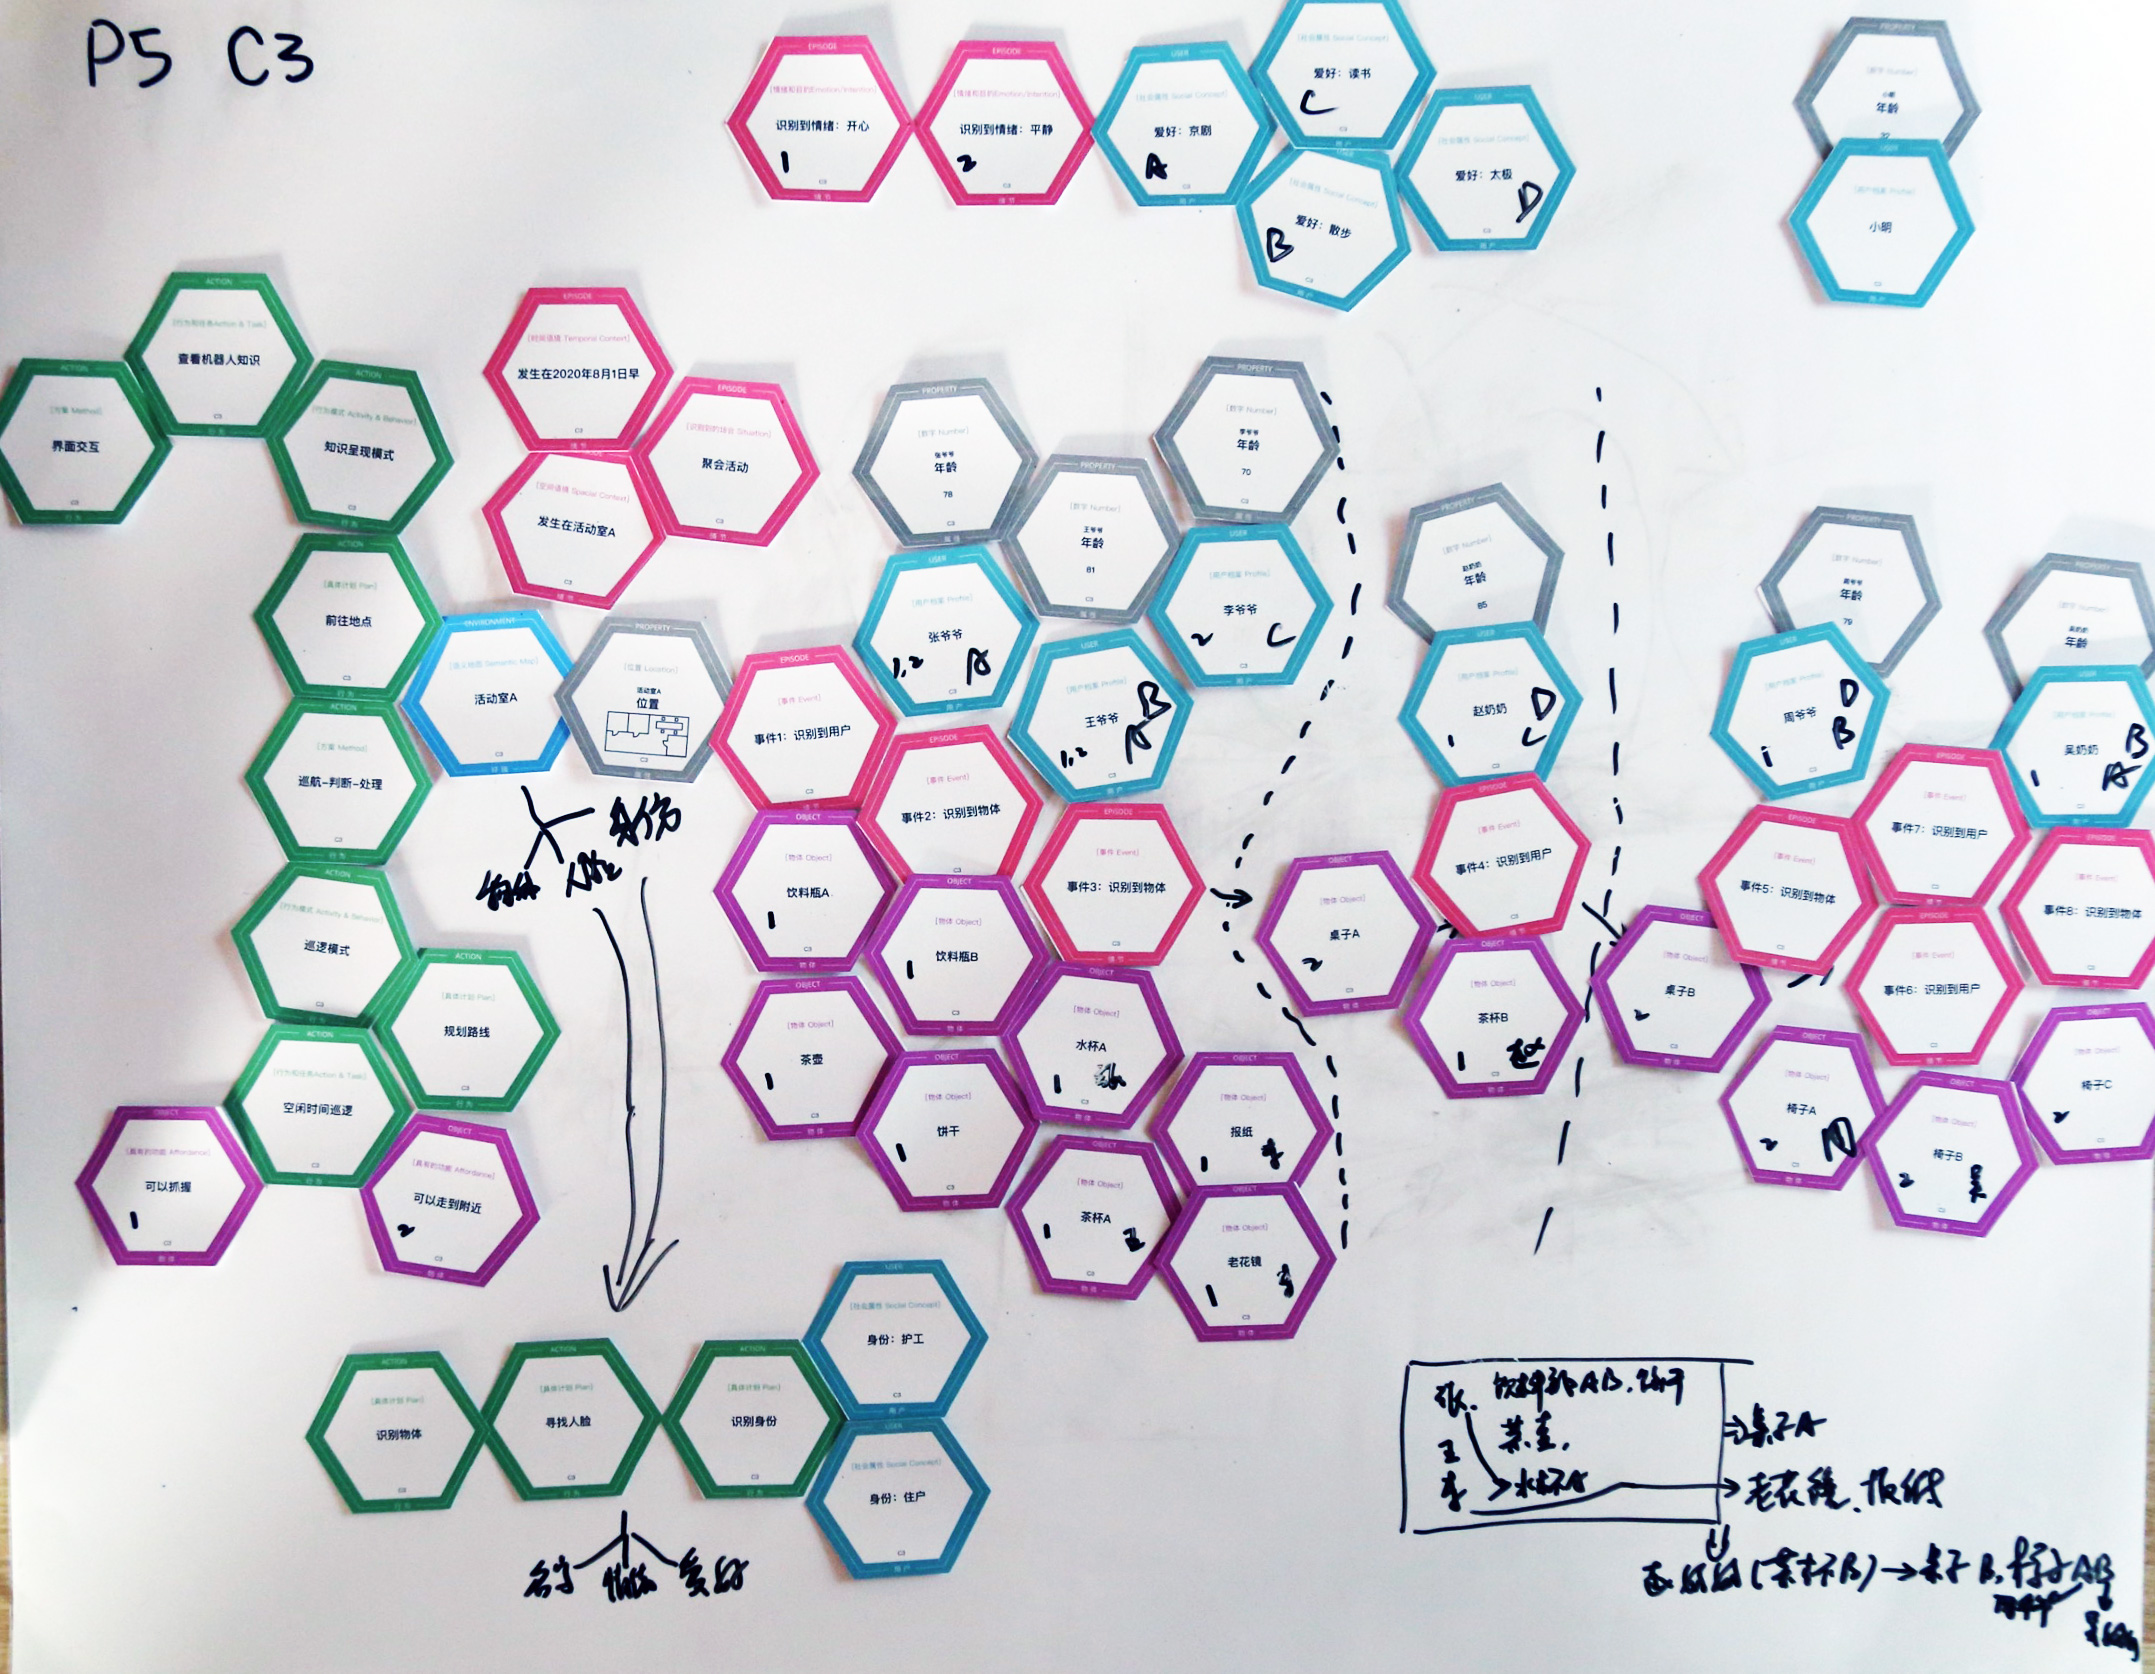 P5 C3
EPISODE
[情绪和目的Emotion/Intention]
识别到情绪：开心
1
C3
情节
EPISODE
[情绪和目的Emotion/Intention]
识别到情绪：平静
2
C3
情节
USER
[社会属性 Social Concept]
爱好：京剧
A
C3
用户
[社会属性 Social Concept]
爱好：读书
C
C3
用户
USER
[社会属性 Social Concept]
爱好：散步
B
C3
用户
USER
[社会属性 Social Concept]
爱好：太极
D
C3
用户
PROPERTY
[数字 Number]
小明
年龄
USER
[用户档案 Profile]
小明
C3
用户
ACTION
[行为和任务Action & Task]
查看机器人知识
C3
行为
ACTION
[方案 Method]
界面交互
C3
行为
ACTION
[行为模式 Activity & Behavior]
知识呈现模式
C3
行为
ACTION
[具体计划 Plan]
前往地点
C3
行为
ACTION
[方案 Method]
巡航-判断-处理
C3
行为
ACTION
[行为模式 Activity & Behavior]
巡逻模式
C3
行为
ACTION
[具体计划 Plan]
规划路线
C3
行为
ACTION
[行为和任务Action & Task]
空闲时间巡逻
C3
行为
OBJECT
[具有的功能 Affordance]
可以抓握
1
C3
物体
OBJECT
[具有的功能 Affordance]
可以走到附近
2
C3
物体
EPISODE
[时间语境 Temporal Context]
发生在2020年8月1日早
C3
情节
EPISODE
[识别到的场合 Situation]
聚会活动
C3
情节
[空间语境 Spacial Context]
发生在活动室A
C3
情节
ENVIRONMENT
[语义地图 Semantic Map]
活动室A
C3
环境
PROPERTY
[位置 Location]
活动室A
位置
C3
属性
物体 人脸 身份
PROPERTY
[数字 Number]
张爷爷
年龄
78
C3
属性
PROPERTY
[数字 Number]
王爷爷
年龄
81
C3
属性
PROPERTY
[数字 Number]
李爷爷
年龄
70
C3
属性
USER
[用户档案 Profile]
张爷爷
1,2 A
C3
用户
USER
[用户档案 Profile]
王爷爷
B
A
1,2
C3
用户
USER
[用户档案 Profile]
李爷爷
2 C
C3
用户
EPISODE
[事件 Event]
事件1：识别到用户
C3
情节
EPISODE
[事件 Event]
事件2：识别到物体
C3
EPISODE
[事件 Event]
事件3：识别到物体
C3
情节
OBJECT
[物体 Object]
饮料瓶A
1
C3
物体
OBJECT
[物体 Object]
饮料瓶B
1
C3
物体
OBJECT
[物体 Object]
茶壶
1
C3
物体
OBJECT
[物体 Object]
饼干
1
C3
物体
OBJECT
[物体 Object]
水杯A
1 张
C3
物体
OBJECT
[物体 Object]
茶杯A
1 王
C3
物体
OBJECT
[物体 Object]
报纸
1 李
OBJECT
[物体 Object]
老花镜
1 李
C3
物体
PROPERTY
[数字 Number]
赵奶奶
年龄
85
USER
[用户档案 Profile]
赵奶奶
D
1 C
C3
用户
EPISODE
[事件 Event]
事件4：识别到用户
C3
情节
OBJECT
[物体 Object]
桌子A
2
C3
物体
OBJECT
[物体 Object]
茶杯B
1 赵
C3
物体
PROPERTY
[数字 Number]
周爷爷
年龄
79
USER
[用户档案 Profile]
周爷爷
D
B
1
C3
用户
PROPERTY
[数字 Number]
吴奶奶
年龄
USER
[用户档案 Profile]
吴奶奶
B
A
1
用户
EPISODE
[事件 Event]
事件5：识别到物体
C3
情节
EPISODE
[事件 Event]
事件7：识别到用户
C3
情节
EPISODE
[事件 Event]
事件8：识别到物体
C3
情节
EPISODE
[事件 Event]
事件6：识别到用户
C3
情节
OBJECT
[物体 Object]
桌子B
2
C3
物体
OBJECT
[物体 Object]
椅子A
2
C3
物体
OBJECT
[物体 Object]
椅子B
2 吴
C3
物体
OBJECT
[物体 Object]
椅子C
2
C3
物体
ACTION
[具体计划 Plan]
识别物体
C3
行为
ACTION
[具体计划 Plan]
寻找人脸
C3
行为
ACTION
[具体计划 Plan]
识别身份
C3
行为
USER
[社会属性 Social Concept]
身份：护工
C3
用户
USER
[社会属性 Social Concept]
身份：住户
C3
用户
名字 情绪 爱好
张. 饮料瓶AB. 饼干
茶壶.
王
李 水杯A
桌子A
老花镜、报纸
赵奶奶(茶杯B)→桌子B, 椅子AB